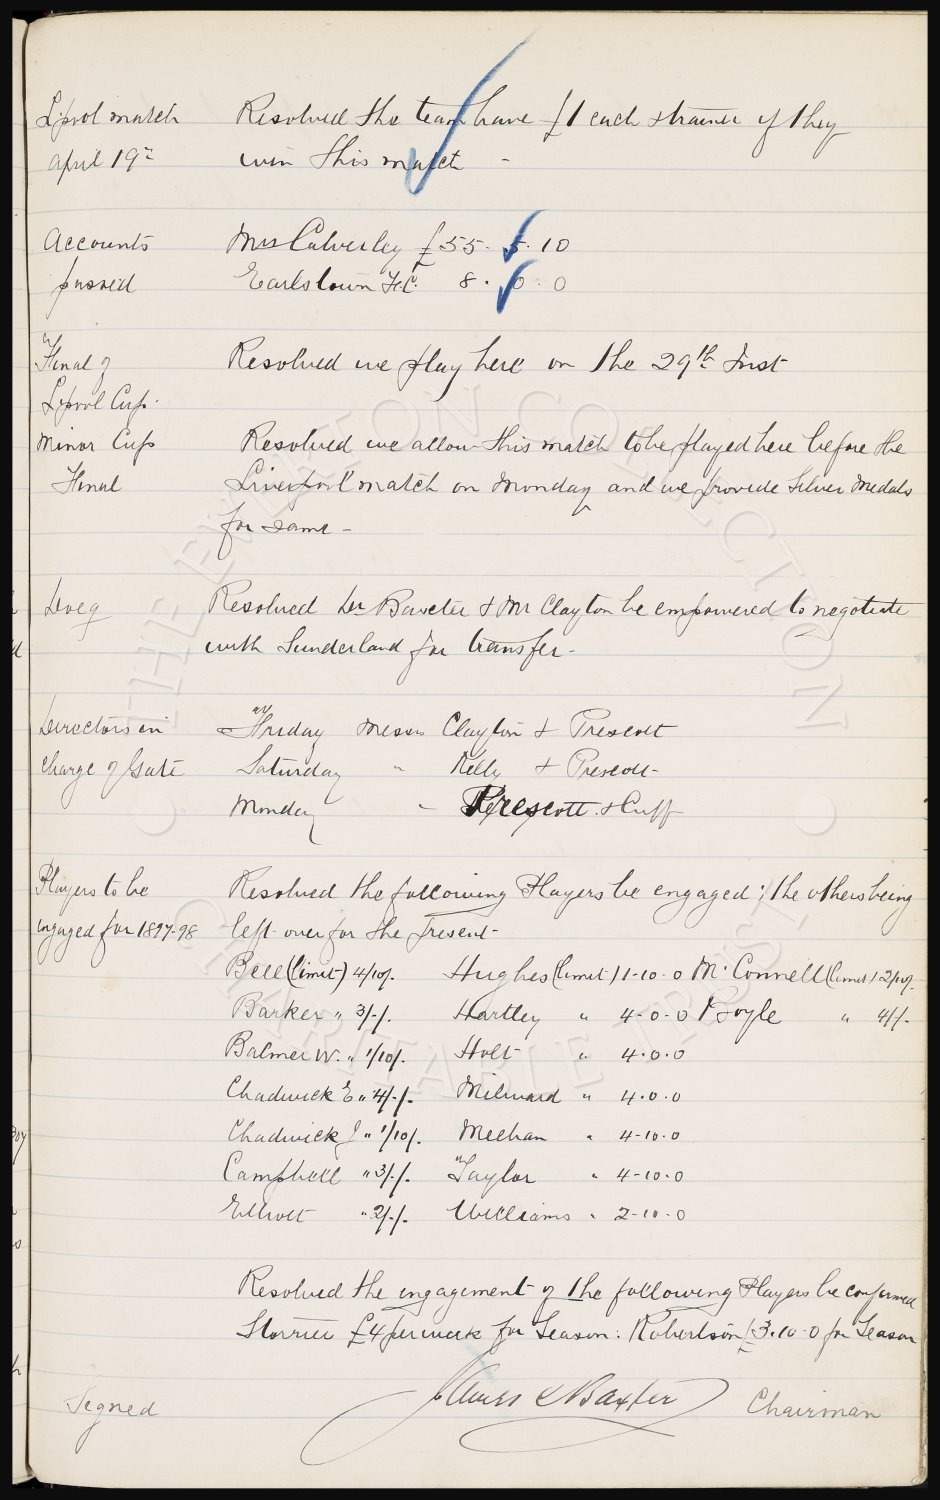 L'pool match Resolved the team have £1 each & trainer if they
April 19th win this match -
Accounts Mrs Calverley £55. 5. 10
passed Earlstown F.C. 8. 0. 0
Final of Resolved we play here on the 29th Inst
L'pool Cup.
Minor Cup Resolved we allow this match to be played here before the
Final Liverpool match on Monday and we provide Silver Medals
for same -
Doeg Resolved Dr Baxter & Mr Clayton be empowered to negotiate
with Sunderland for transfer -
Directors in Friday Messrs Clayton & Prescott
Charge of Gate Saturday " Kelly & Prescott -
Monday " Prescott & Cuff
Players to be Resolved the following Players be engaged; the others being
engaged for 1897-98 left over for the present -
Bell (limit) 4/10/. Hughes (limit) 1-10-0 McConnell (limit) 2/10/.
Barker " 3/-/. Hartley " 4-0-0 Boyle " 4/-/.
Balmer W. " 1/10/. Holt " 4.0.0
Chadwick E " 4/-/. Milward " 4.0.0
Chadwick J " 1/10/. Meehan " 4-10-0
Campbell " 3/-/. Taylor " 4-10-0
Elliott " 2/-/. Williams " 2-10-0
Resolved the engagement of the following Players be confirmed
Storrier £4 per week for Season: Robertson £3.10.0 for Season
Signed James C Baxter Chairman
THE EVERTON COLLECTION
CHARITABLE TRUST